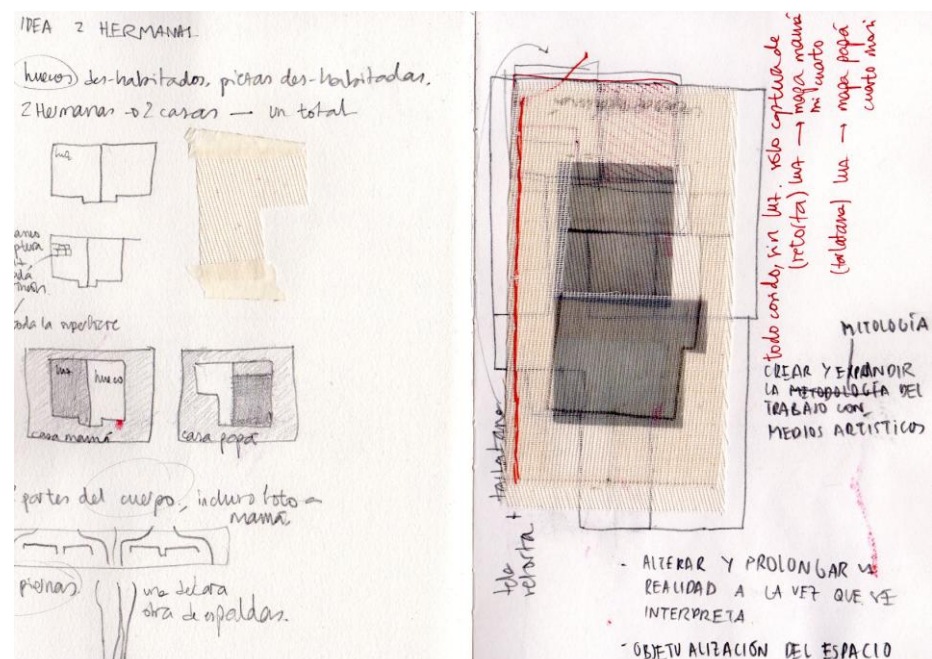 IDEA 2 HERMANAS
huecos des-habitados, piezas des-habitadas.
2 Hermanas → 2 casas — un total
luz
toda la superficie
luz hueco
casa mamá
casa papá
partes del cuerpo, incluso foto a
mamá.
piernas
una de cara
otra de espaldas.
todo cosido, sin luz. sólo captura de
(retorta) luz → mapa mamá
mi cuarto
(tarlatana) luz → mapa papá
cuarto mari
tela
retorta + tarlatana
MITOLOGÍA
CREAR Y EXPANDIR
LA METODOLOGÍA DEL
TRABAJO CON
MEDIOS ARTÍSTICOS
- ALTERAR Y PROLONGAR LA
REALIDAD A LA VEZ QUE SE
INTERPRETA
- OBJETUALIZACIÓN DEL ESPACIO